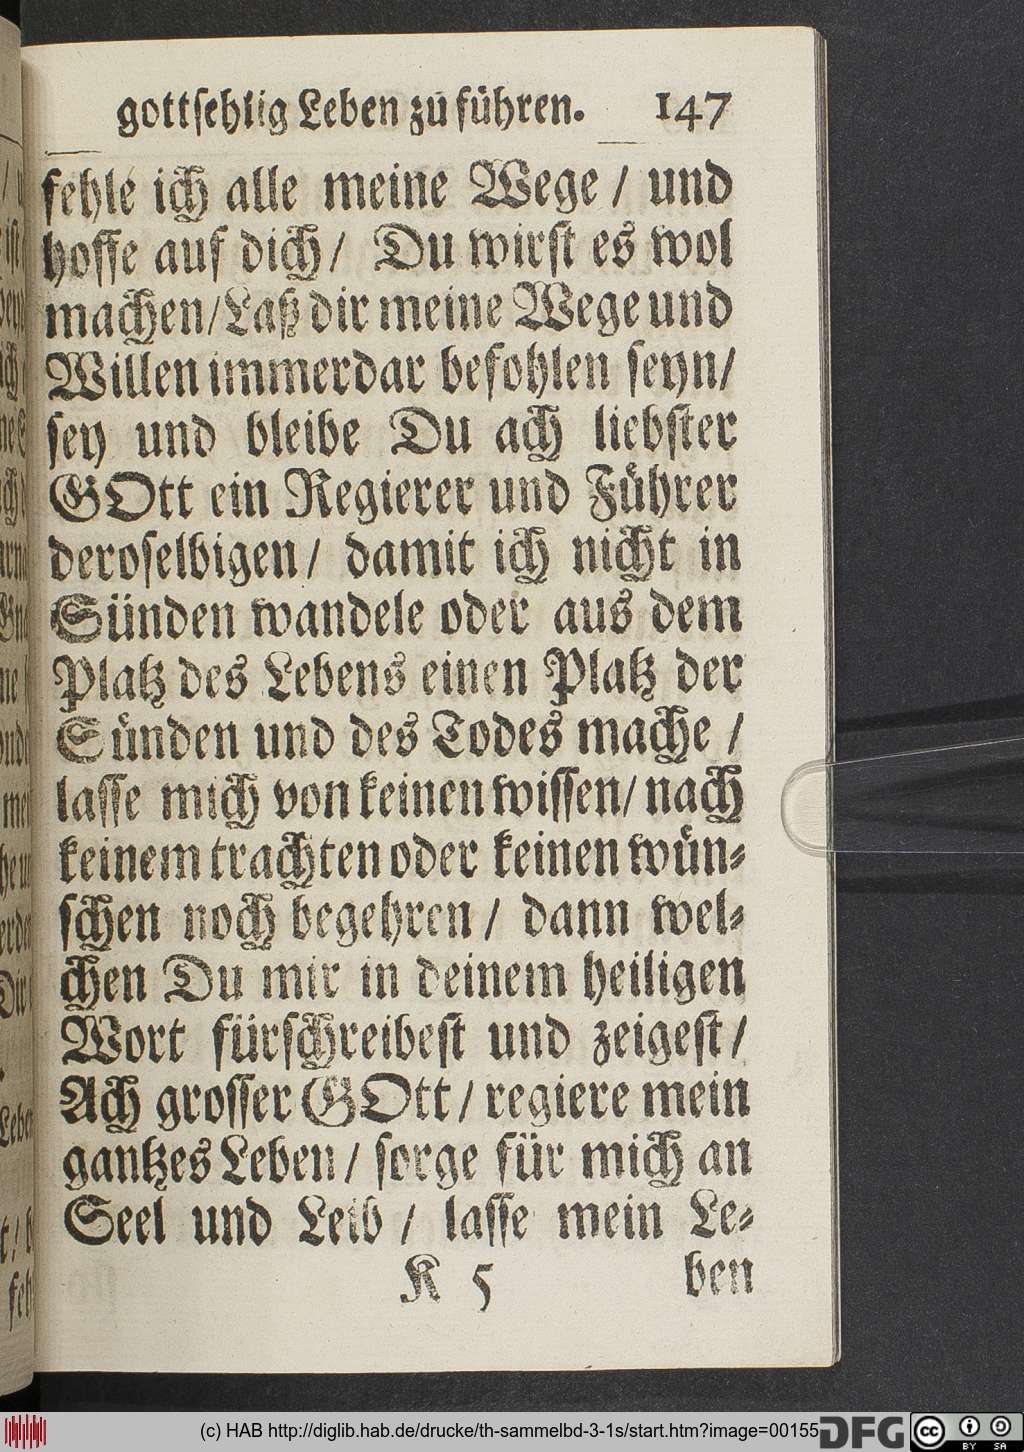 gottsehlig Leben zu führen. 147
fehle ich alle meine Wege / und
hoffe auf dich / Du wirst es wol
machen / Laß dir meine Wege und
Willen immerdar befohlen seyn /
sey und bleibe Du ach liebster
GOtt ein Regierer und Führer
deroselbigen / damit ich nicht in
Sünden wandele oder aus dem
Platz des Lebens einen Platz der
Sünden und des Todes mache /
lasse mich von keinen wissen / nach
keinem trachten oder keinen wün-
schen noch begehren / dann wel-
chen Du mir in deinem heiligen
Wort fürschreibest und zeigest /
Ach grosser GOtt / regiere mein
gantzes Leben / sorge für mich an
Seel und Leib / lasse mein Le-
K 5 ben
(c) HAB http://diglib.hab.de/drucke/th-sammelbd-3-1s/start.htm?image=00155
DFG
cc BY SA